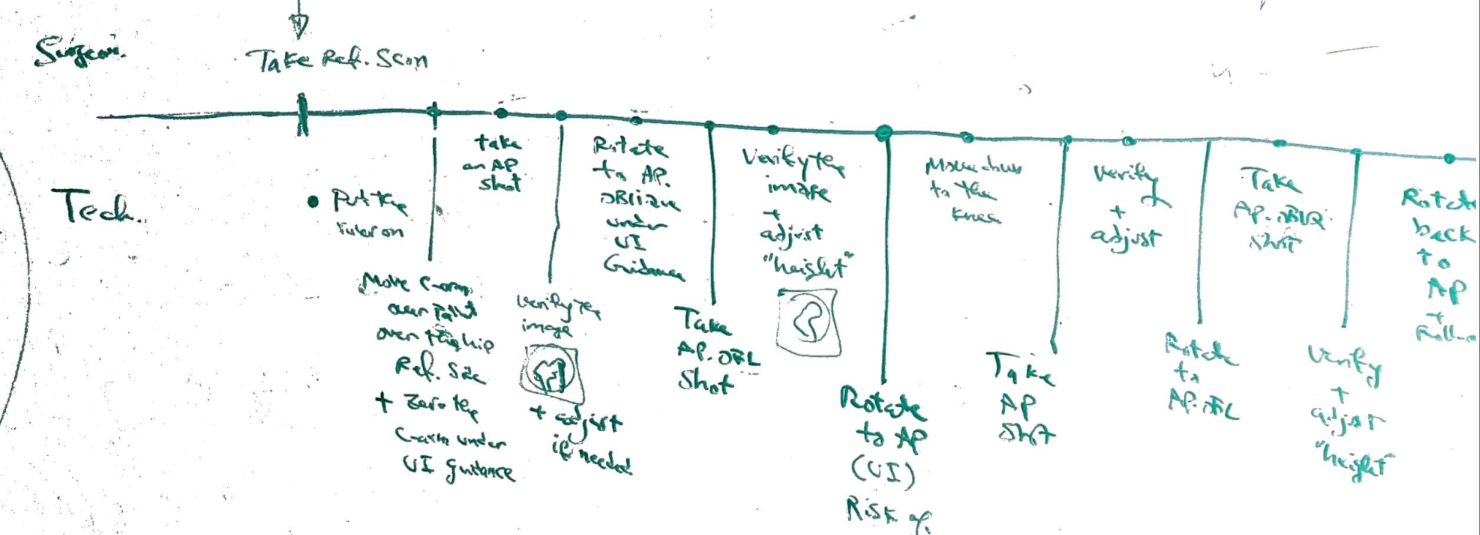 Surgeon.
Take Ref. Scan
Tech.
• Put the
on
Move C-arm
over
over the hip
Ref. Side
+ Zero the
C-arm under
UI guidance
take
an AP
shot
Verify the
image
+ adjust
if needed
Rotate
to AP.
oblique
under
UI
Guidance
Take
AP. OBL
Shot
Verify the
image
+
adjust
"height"
Rotate
to AP
(UI)
Risk of.
Move
to the
knee
Take
AP
Shot
Verify
+
adjust
Rotate
to
AP. OBL
Take
AP. OBLQ
Shot
Verify
+
adjust
"height"
Rotate
back
to
AP
+